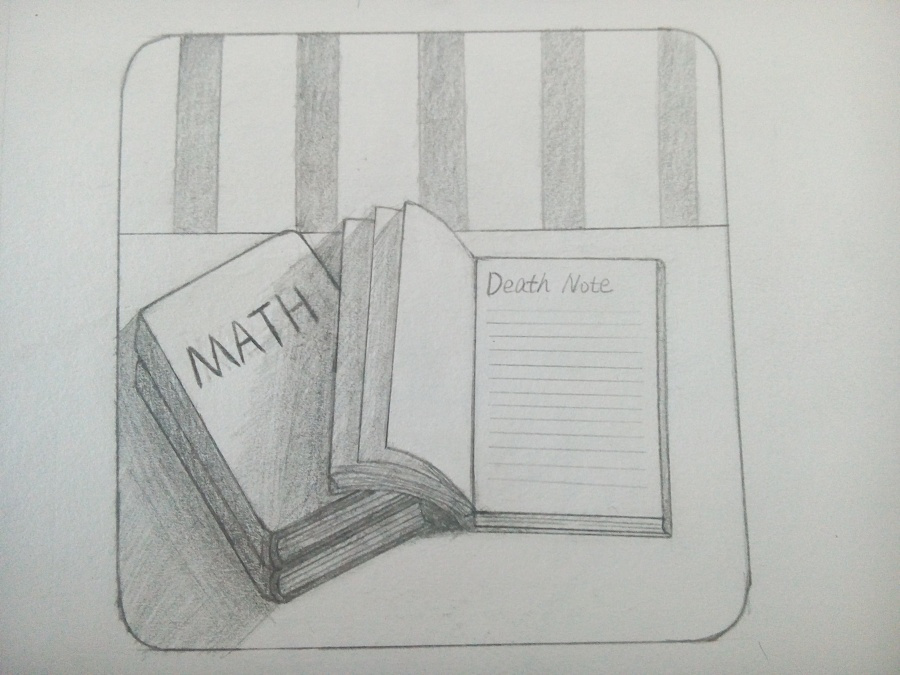 MATH
Death Note